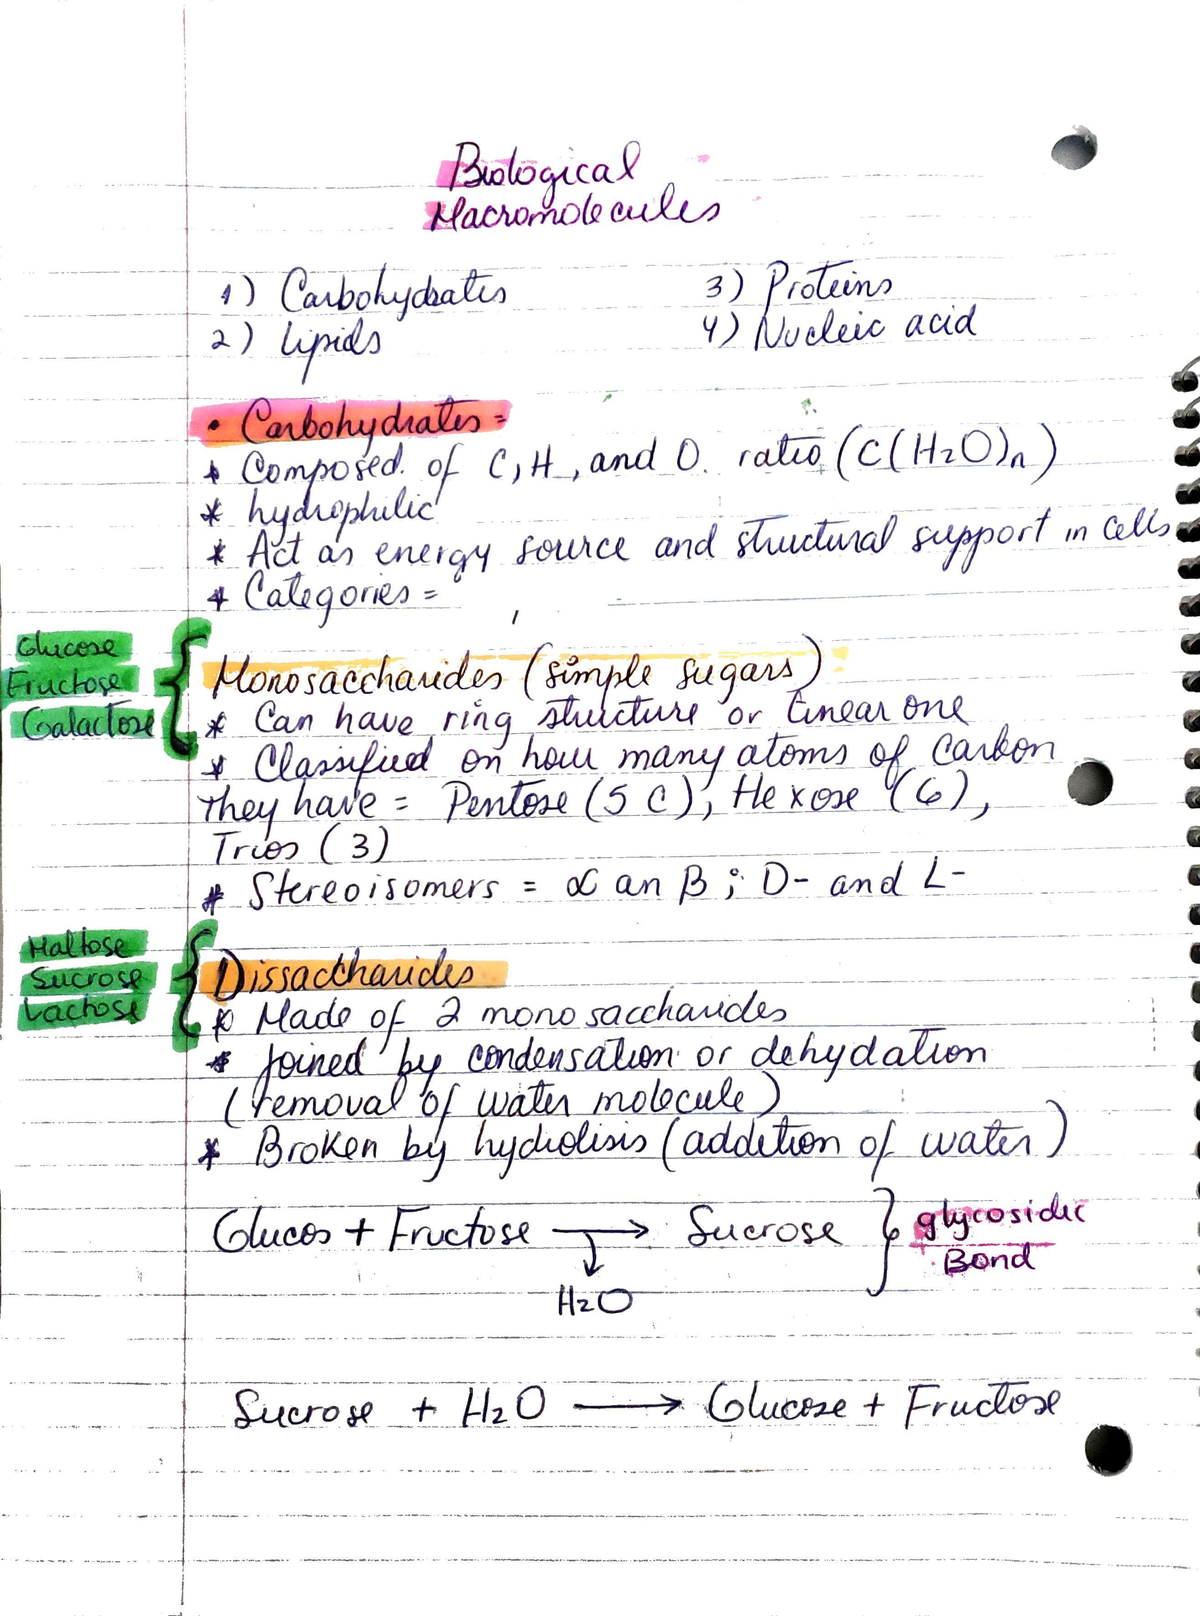 Biological
Macromolecules
1) Carbohydrates
2) Lipids
3) Proteins
4) Nucleic acid
• Carbohydrates =
* Composed. of C, H, and O. ratio (C(H2O)n)
* hydrophilic
* Act as energy source and structural support in cells
* Categories =
Glucose
Fructose
Galactose
Monosaccharides (simple sugars)
* Can have ring structure or linear one
* Classified on how many atoms of carbon
they have = Pentose (5 C), Hexose (6),
Trios (3)
* Stereoisomers = α an β ; D- and L-
Maltose
Sucrose
Lactose
Dissaccharides
* Made of 2 monosaccharides
* Joined by condensation or dehydation
(removal of water molecule)
* Broken by hydrolisis (addetion of water)
Glucos + Fructose → Sucrose } glycosidic
Bond
H2O
Sucrose + H2O → Glucose + Fructose